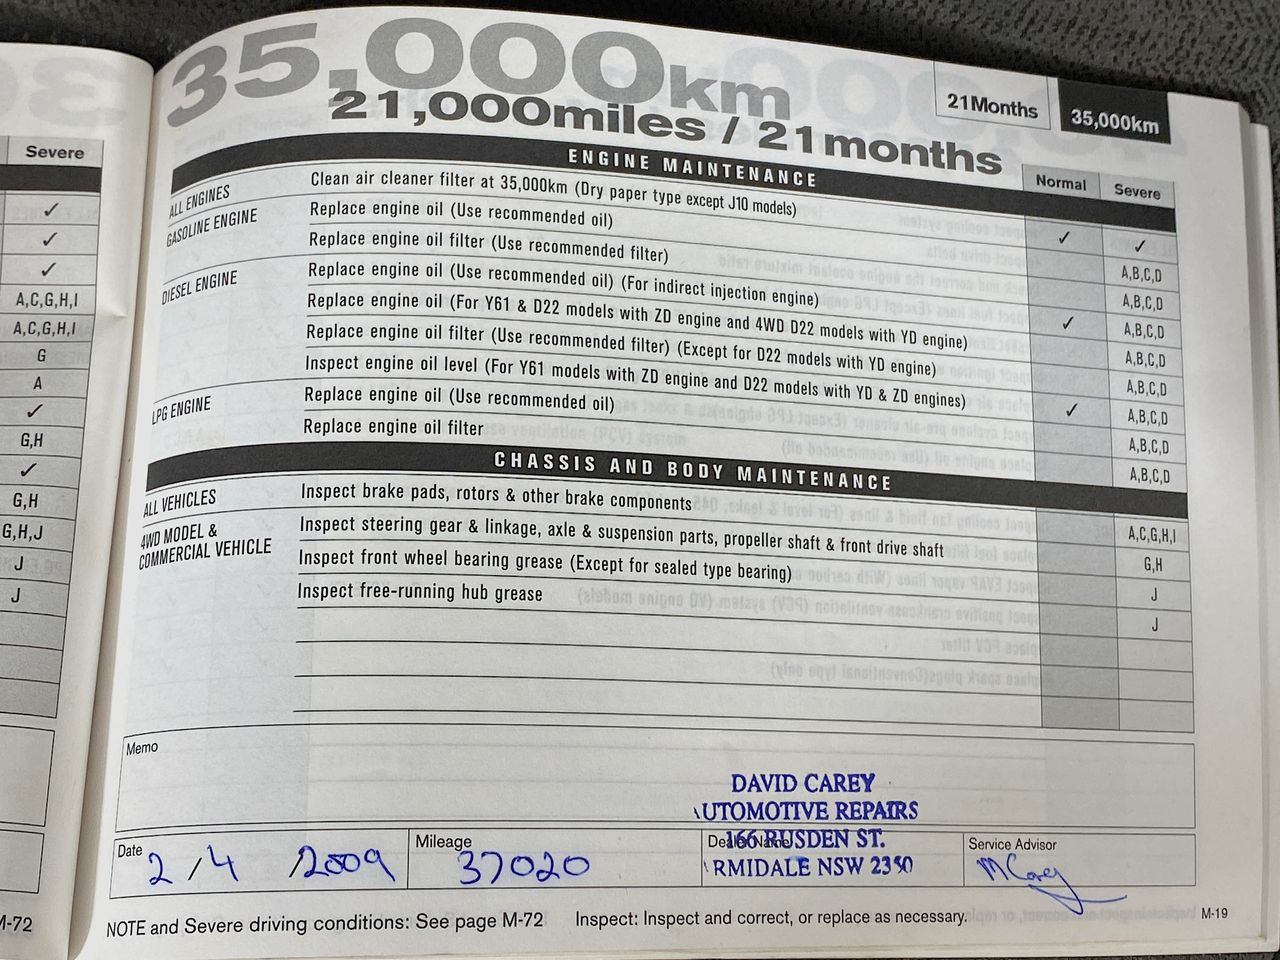 Severe
✓
✓
✓
A,C,G,H,I
A,C,G,H,I
G
A
✓
G,H
✓
G,H
G,H,J
J
J
M-72
35,000km
21,000miles / 21months
21Months
35,000km
ENGINE MAINTENANCE
Normal
Severe
ALL ENGINES
Clean air cleaner filter at 35,000km (Dry paper type except J10 models)
✓
✓
GASOLINE ENGINE
Replace engine oil (Use recommended oil)
A,B,C,D
Replace engine oil filter (Use recommended filter)
A,B,C,D
DIESEL ENGINE
Replace engine oil (Use recommended oil) (For indirect injection engine)
✓
A,B,C,D
Replace engine oil (For Y61 & D22 models with ZD engine and 4WD D22 models with YD engine)
A,B,C,D
Replace engine oil filter (Use recommended filter) (Except for D22 models with YD engine)
A,B,C,D
Inspect engine oil level (For Y61 models with ZD engine and D22 models with YD & ZD engines)
✓
A,B,C,D
LPG ENGINE
Replace engine oil (Use recommended oil)
A,B,C,D
Replace engine oil filter
A,B,C,D
CHASSIS AND BODY MAINTENANCE
ALL VEHICLES
Inspect brake pads, rotors & other brake components
A,C,G,H,I
4WD MODEL &
COMMERCIAL VEHICLE
Inspect steering gear & linkage, axle & suspension parts, propeller shaft & front drive shaft
G,H
Inspect front wheel bearing grease (Except for sealed type bearing)
J
Inspect free-running hub grease
J
Memo
DAVID CAREY
UTOMOTIVE REPAIRS
166 RUSDEN ST.
RMIDALE NSW 2350
Date
2/4/2009
Mileage
37020
Dealer Name
Service Advisor
MCarey
NOTE and Severe driving conditions: See page M-72
Inspect: Inspect and correct, or replace as necessary.
M-19